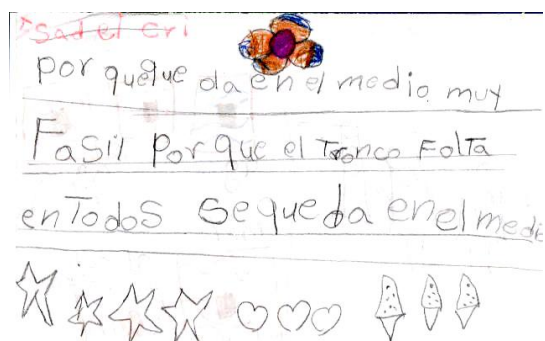 Sad el Cri
por queque da en el medio muy
Fasil Por que el Tronco Folta
en Todos Se queda en el medio